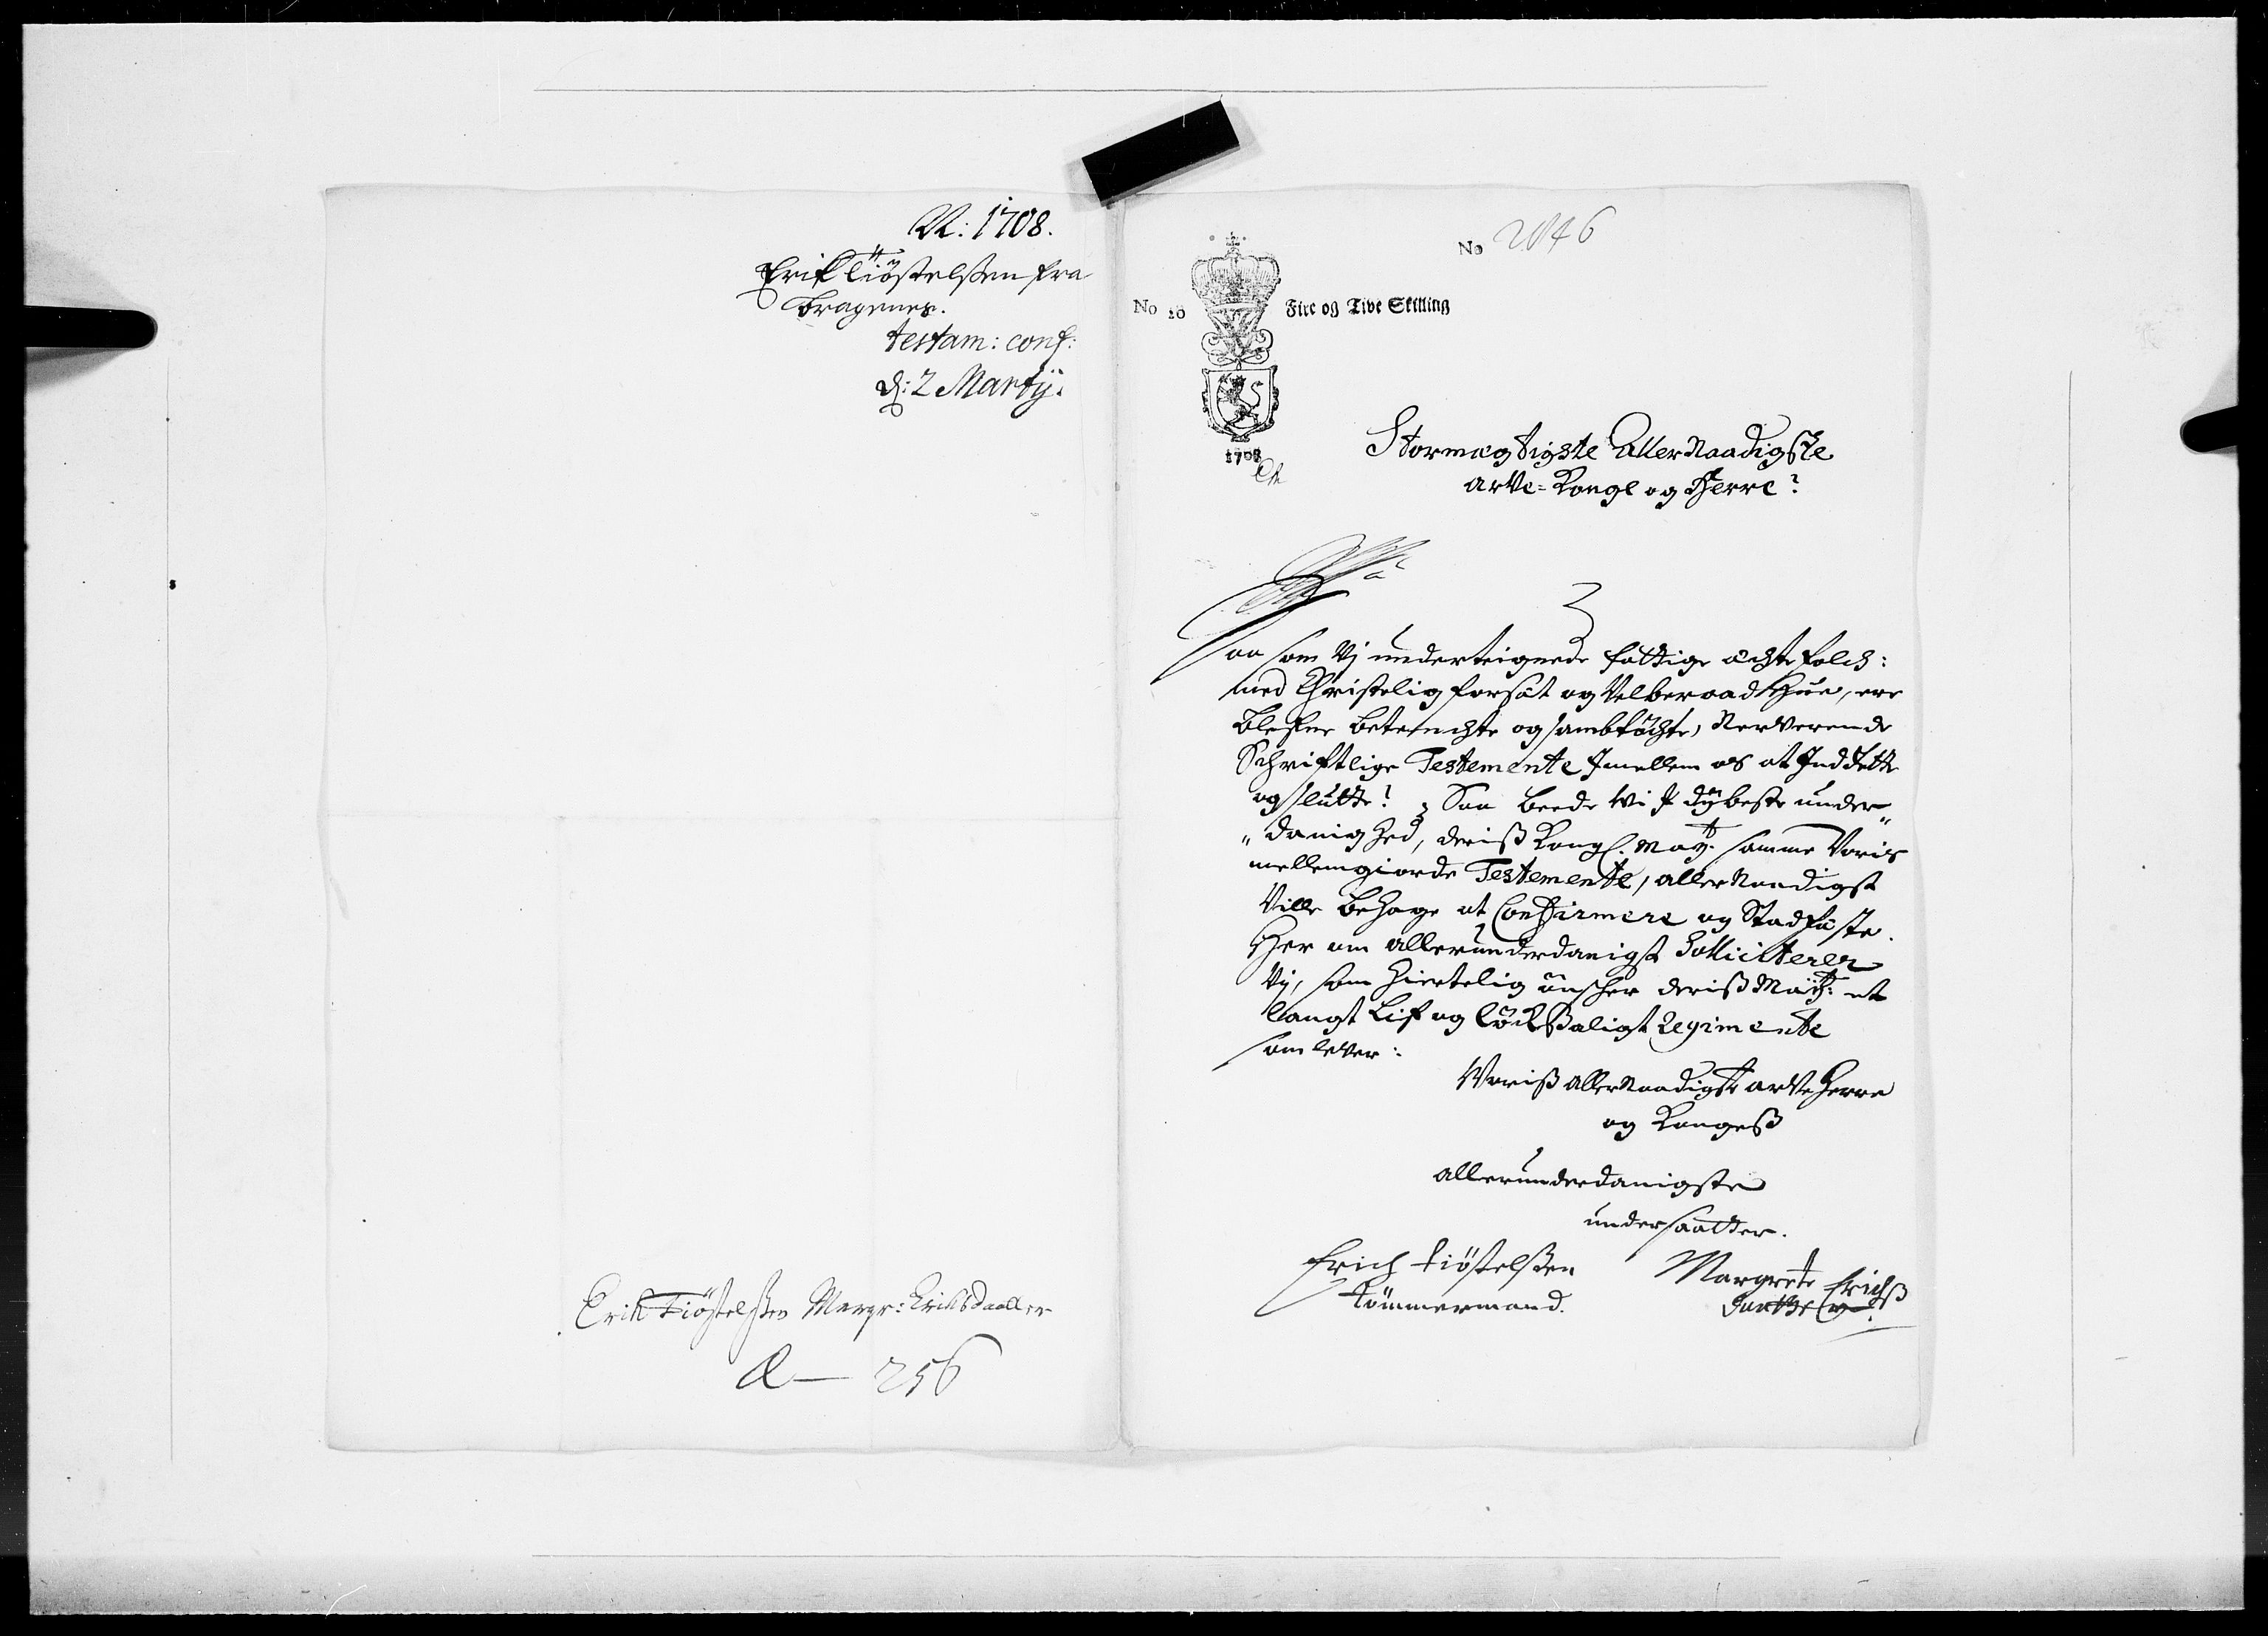 A: 1708.
Erik Tiöstelßen fra
Bragenes.
testam: conf:
d: 2 Martij.
Erik Tiöstelßen Margr: Eriksdaatter
A — 256
No 2846
No 10 Fire og Tive Skilling
1708
Stormegtigste AllerNaadigste
Arve-Konge og Herre?
Saa som Vj underteignede fattige ächtefolch:
med Christelig forsät og Velberaad Hue, ere
blefne betenchte og sambtöchte, Nerverende
Schriftlige Testemente Jmellem os at Jndrette
og slutte? Saa beede Wi J dÿbeste under„
„danighed, deriß Kongl. Maÿt. samme Voris
mellemgiorde Testemente, allerNaadigst
Ville behage at Confirmere og Stadfäste.
Her om allerunderdanigst Solliciterer
Vj, som hiertelig önscher deriß Maÿt: et
langt Lif og löckßaligt Regimente
som lever:
Voriß AllerNaadigste arve Herre
og Kongeß
allerunderdanigste
undersaatter.
Erich Tiöstelßen
Tömmermand.
Margrete Erichß
Daatter